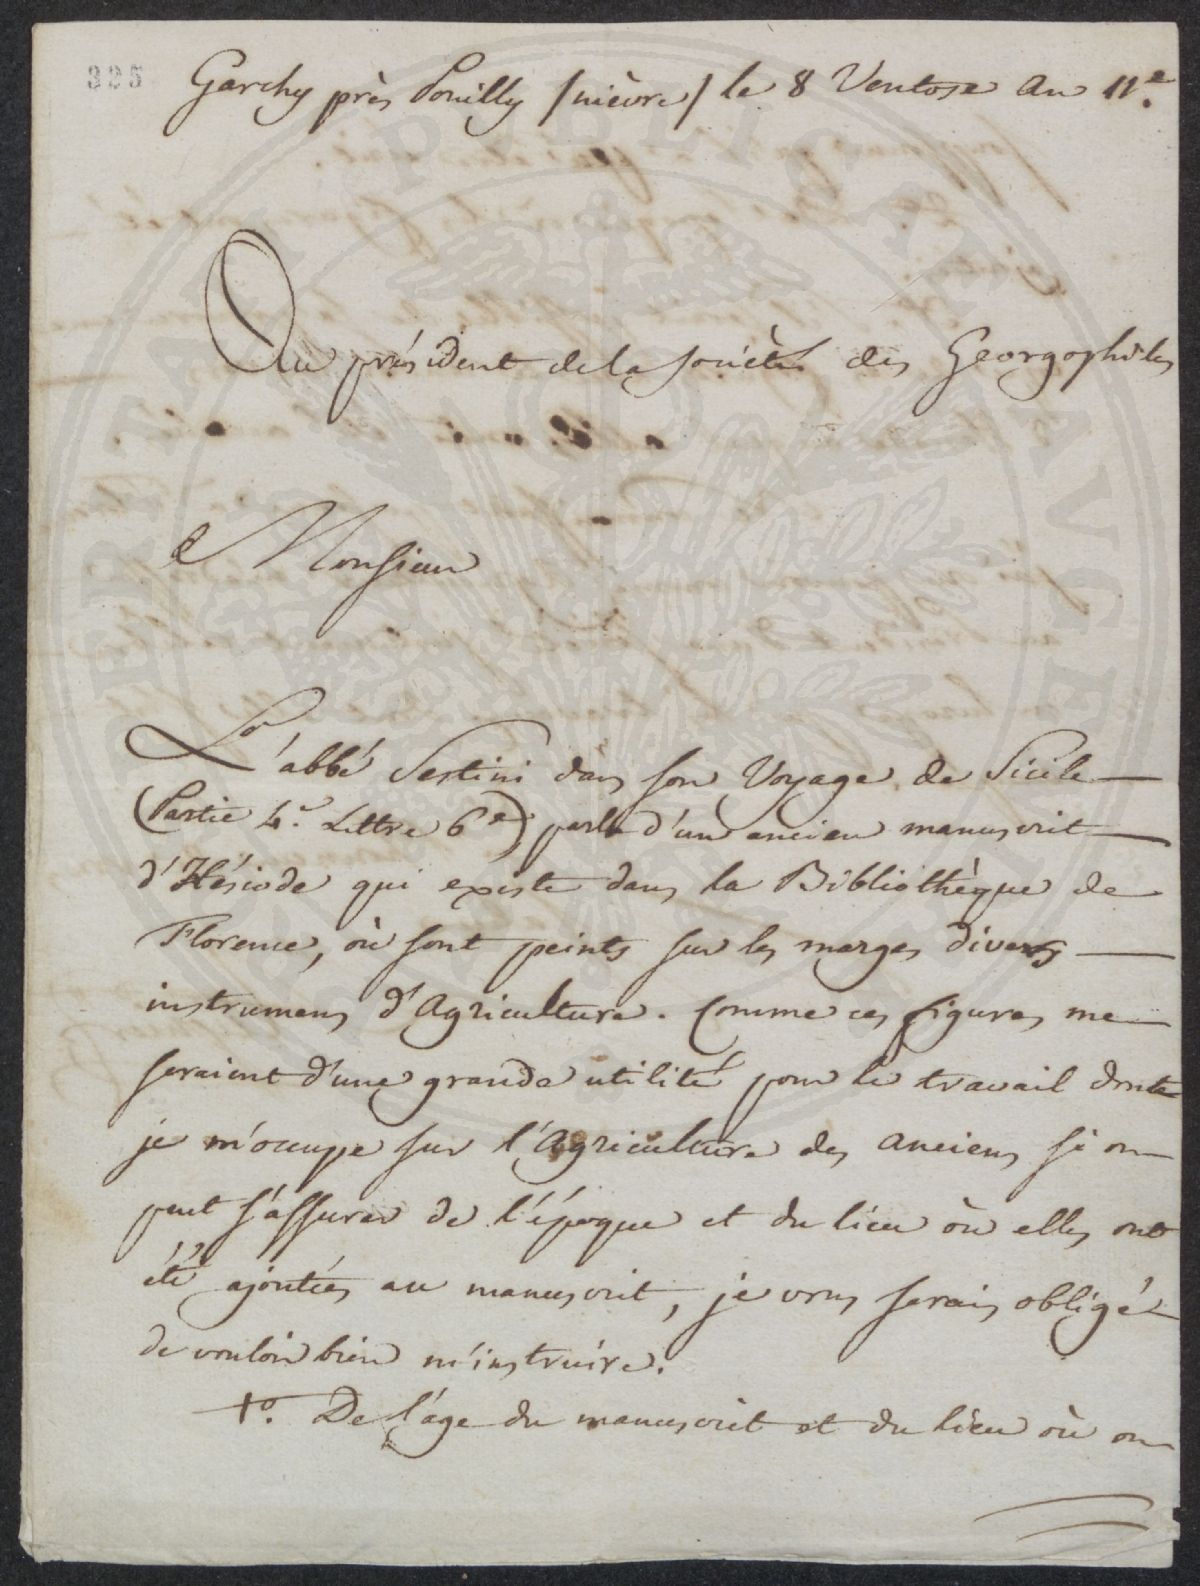 325
Garchy près Pouilly /nièvre/ le 8 Ventose an 11.e
Au président de la société des Georgophiles
Monsieur
L'abbé Sestini dans son Voyage de Sicile
(Partie 4.e Lettre 6e) parle d'un ancien manuscrit
d'Hésiode qui existe dans la Bibliothèque de
Florence, où sont peints sur les marges divers
instrumens d'Agriculture. Comme ces figures me
seraient d'une grande utilité pour le travail dont
je m'occupe sur l'Agriculture des anciens si on
peut s'assurer de l'époque et du lieu où elles ont
été ajoutées au manuscrit, je vous serais obligé
de vouloir bien m'instruire.
1o. De l'age du manuscrit et du lieu où on